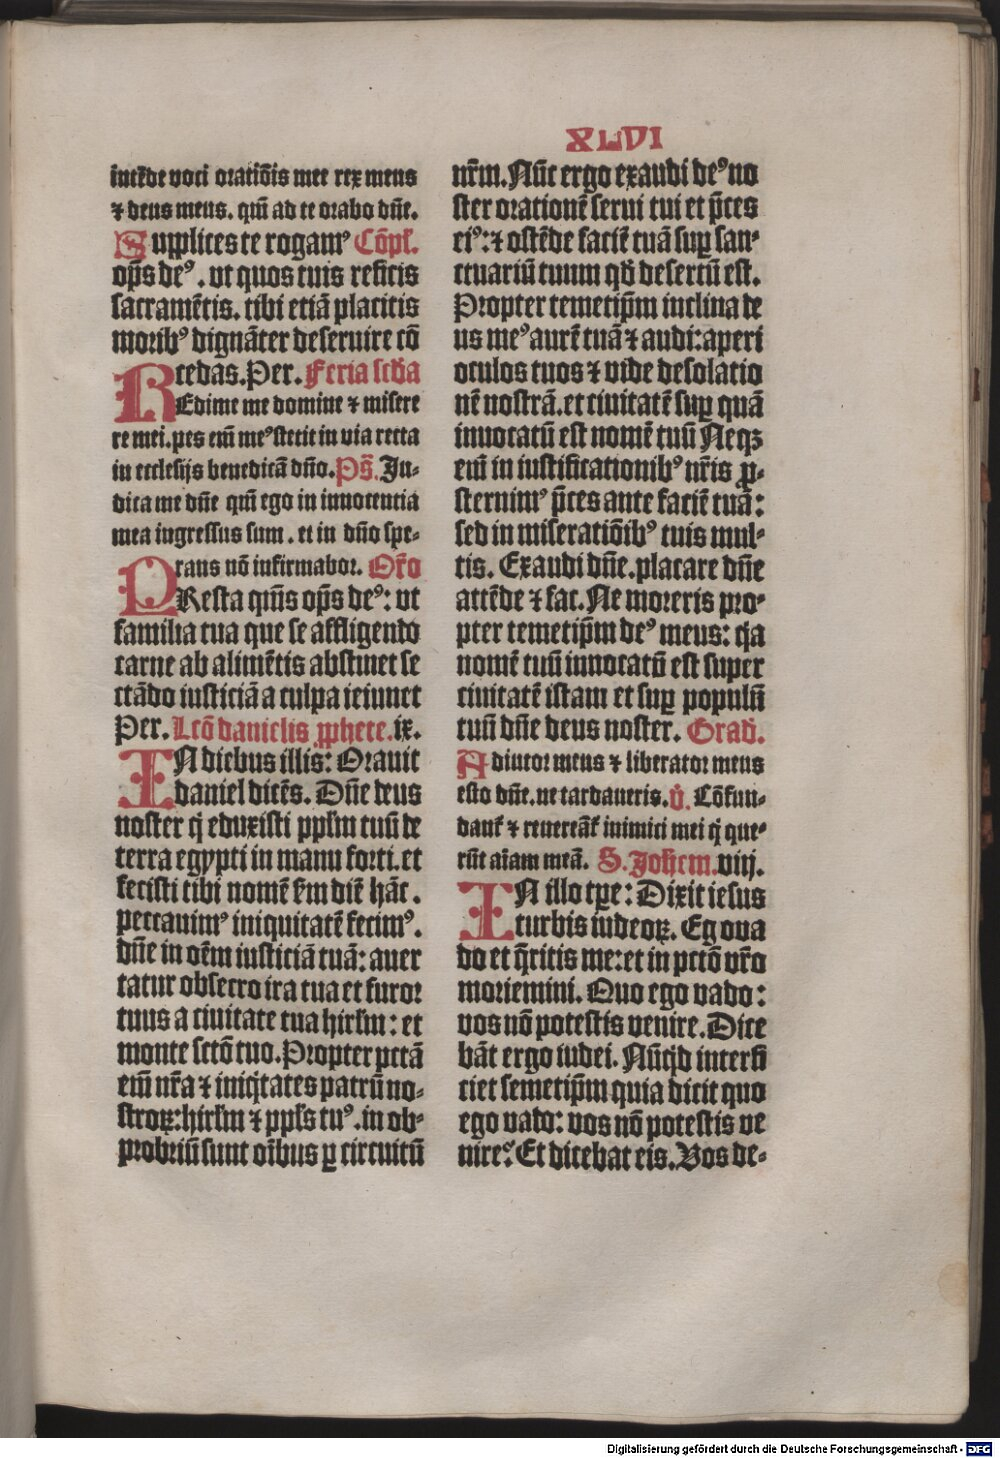 XLVI
intēde voci oratiōis mee rex meus
⁊ deus meus. qm̄ ad te orabo dn̄e.
Supplices te rogamꝰ Cōpl̄.
opp̄s deꝰ. vt quos tuis reficis
sacramētis. tibi etiā placitis
moribꝰ dignāter deseruire cō
cedas. Per. Feria scd̄a
REdime me domine ⁊ misere
re mei. pes em̄ meꝰ stetit in via recta
in ecclesijs benedicā dn̄o. Ps̄. Ju-
dica me dn̄e qm̄ ego in innocentia
mea ingressus sum. et in dn̄o spe-
rans nō infirmabor. Or̄o
PResta qm̄s op̄s deꝰ: vt
familia tua que se affligendo
carne ab alimētis abstinet se
ctādo iusticiā a culpa ieiunet
Per. Lcō danielis ꝓphete. ix.
IN diebus illis: Orauit
daniel dicēs. Dn̄e deus
noster q̄ eduxisti ppl̄m tuū de
terra egypti in manu forti. et
fecisti tibi nomē s̄m diē hāc.
peccauimꝰ iniquitatē fecimꝰ.
dn̄e in oēm iusticiā tuā: auer
tatur obsecro ira tua et furor
tuus a ciuitate tua hirl̄m: et
monte sctō tuo. Propter pctā
em̄ nr̄a ⁊ iniq̇tates patrū no-
stroꝝ: hirl̄m ⁊ ppl̄s tuꝰ. in ob-
probriū sunt oībus ꝑ circuitū
nr̄m. Nūc ergo exaudi deꝰ no
ster orationē serui tui et p̄ces
eiꝰ: ⁊ ostēde faciē tuā suꝑ san-
ctuariū tuum qḋ desertū est.
Propter temetip̄m inclina de
us meꝰ aurē tuā ⁊ audi: aperi
oculos tuos ⁊ vide desolatio
nē nostrā. et ciuitatē suꝑ quā
inuocatū est nomē tuū Neqꝫ
em̄ in iustificationibꝰ nr̄is ꝓ-
sternimꝰ p̄ces ante faciē tuā:
sed in miseratiōibꝰ tuis mul-
tis. Exaudi dn̄e. placare dn̄e
attēde ⁊ fac. Ne moreris pro-
pter temetip̄m deꝰ meus: q̇a
nomē tuū inuocatū est super
ciuitatē istam et suꝑ populū
tuū dn̄e deus noster. Grad̄.
Adiutor meus ⁊ liberator meus
esto dn̄e. ne tardaueris. v̄. Cōfun-
dant̄ ⁊ reuereāt̄ inimici mei q̄ que-
rūt aīam meā. S. Joh̄em. viij.
IN illo tꝑe: Dixit iesus
turbis iudeoꝝ. Ego va
do et q̄ritis me: et in pctō vr̄o
moriemini. Quo ego vado:
vos nō potestis venire. Dice
bāt ergo iudei. Nūq̇d interfi
ciet semetip̄m quia dicit quo
ego vado: vos nō potestis ve
nire? Et dicebat eis. Vos de-
Digitalisierung gefördert durch die Deutsche Forschungsgemeinschaft - DFG